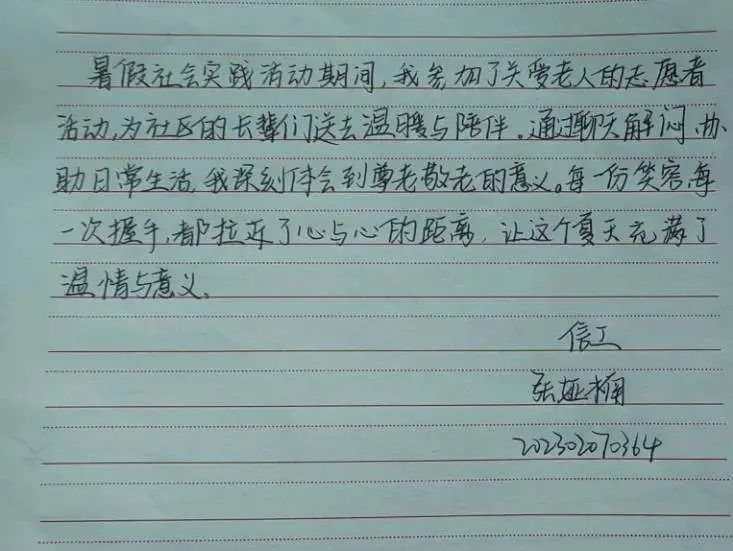 暑假社会实践活动期间,我参加了关爱老人的志愿者
活动,为社区的长辈们送去温暖与陪伴。通过聊天解闷、协
助日常生活,我深刻体会到尊老敬老的意义。每一份笑容,每
一次握手,都拉近了心与心的距离,让这个夏天充满了
温情与意义。
信工
张娅楠
202302070364